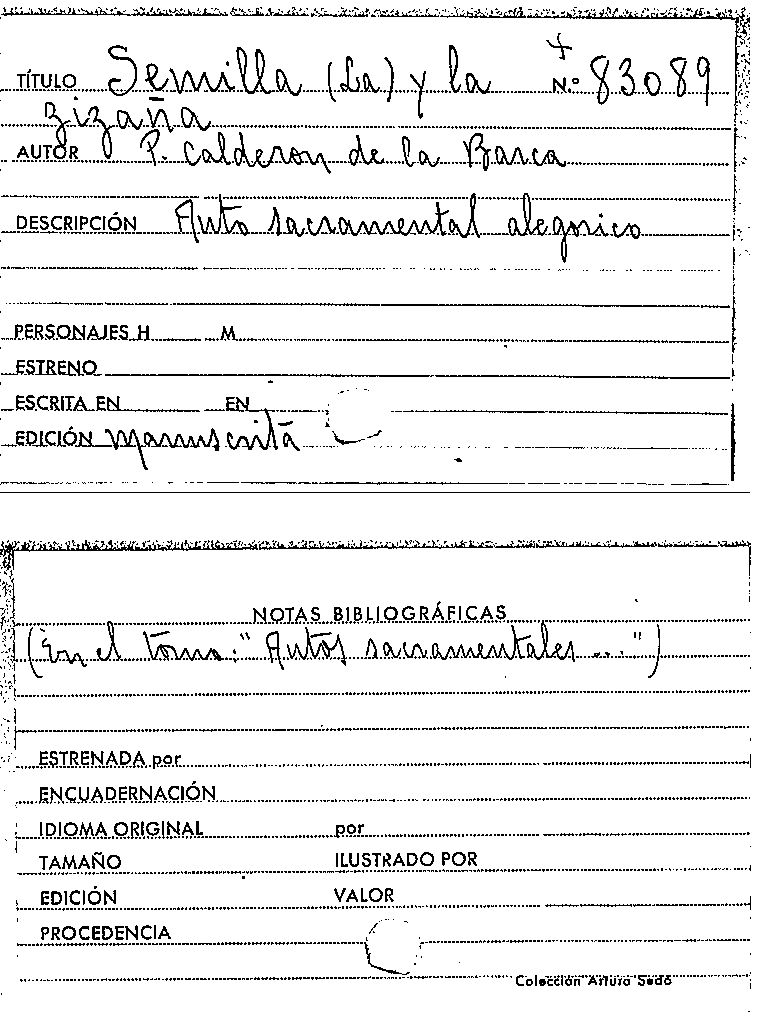 TÍTULO Semilla (La) y la N.º 83089
zizaña
AUTOR P. Calderon de la Barca
DESCRIPCIÓN Auto sacramental alegorico
PERSONAJES H M
ESTRENO
ESCRITA EN EN
EDICIÓN manuscrita
NOTAS BIBLIOGRÁFICAS
(En el tomo: "Autos sacramentales ...")
ESTRENADA por
ENCUADERNACIÓN
IDIOMA ORIGINAL por
TAMAÑO ILUSTRADO POR
EDICIÓN VALOR
PROCEDENCIA
Colección Arturo Sedó